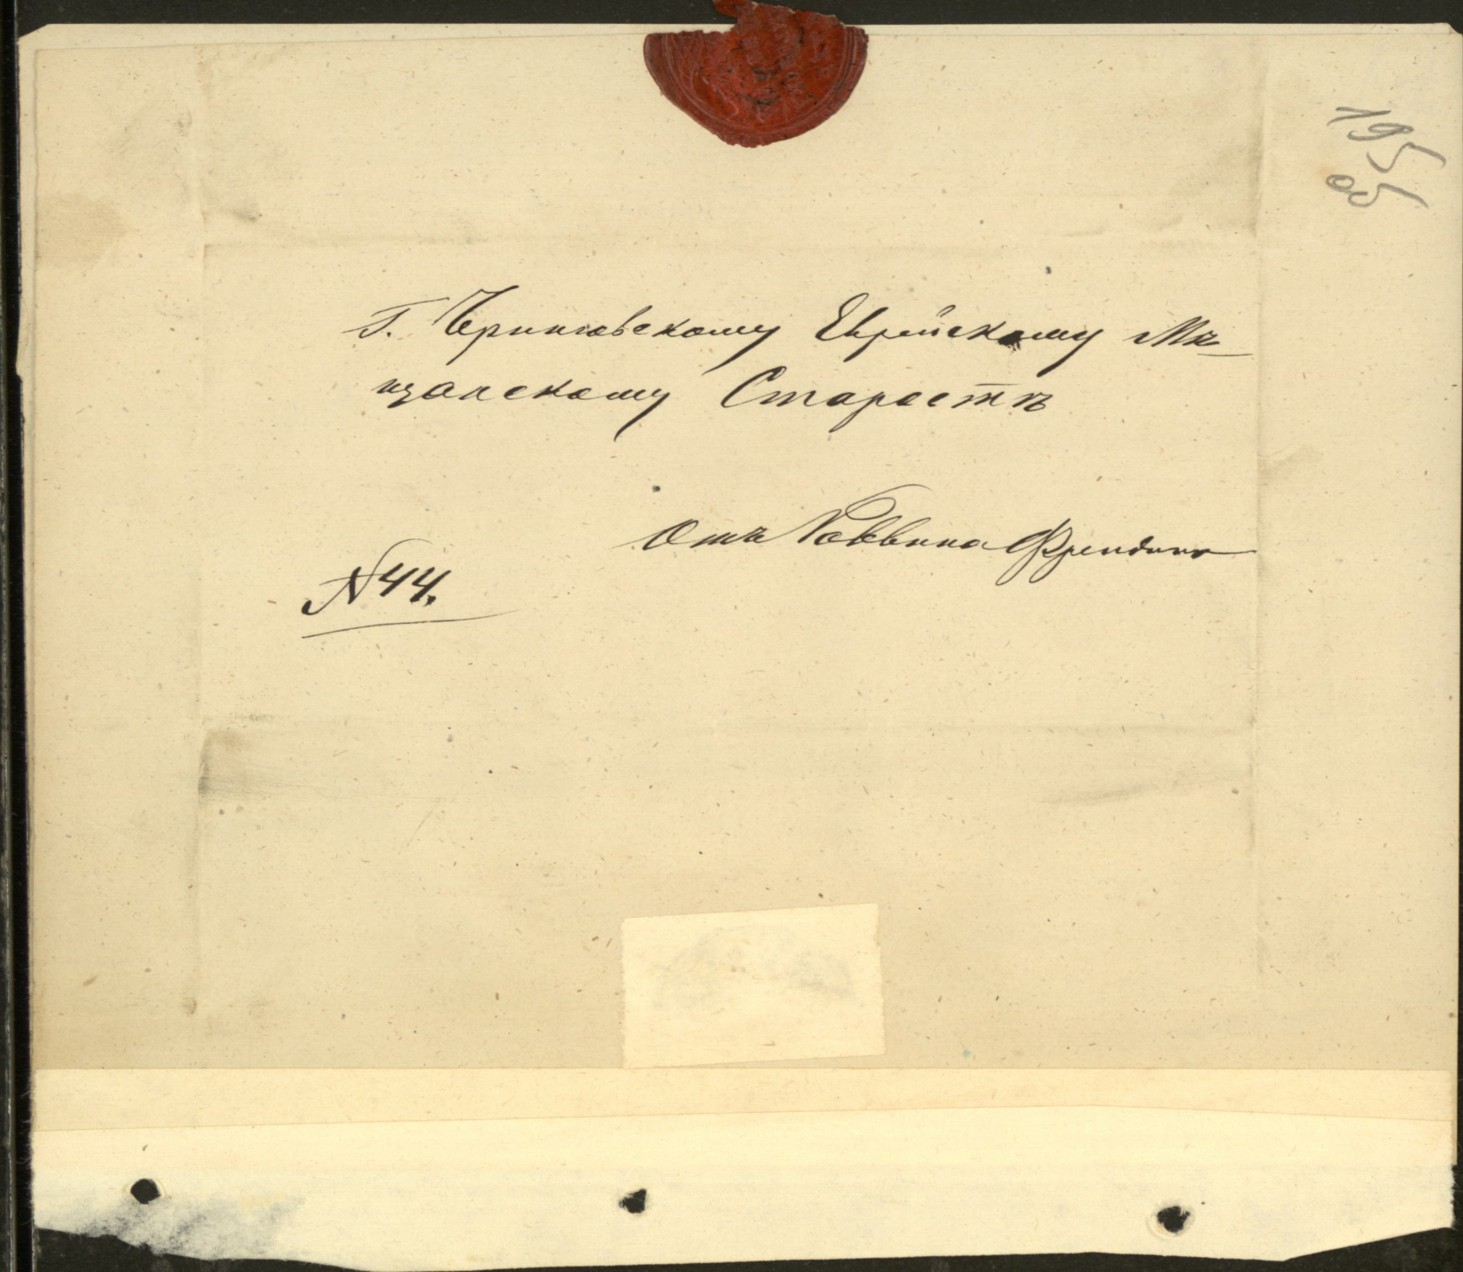 195
об
Г. Черниговскому Еврейскому Мѣ-
щанскому Старостѣ
Отъ Раввина Фрейдина
№ 44.